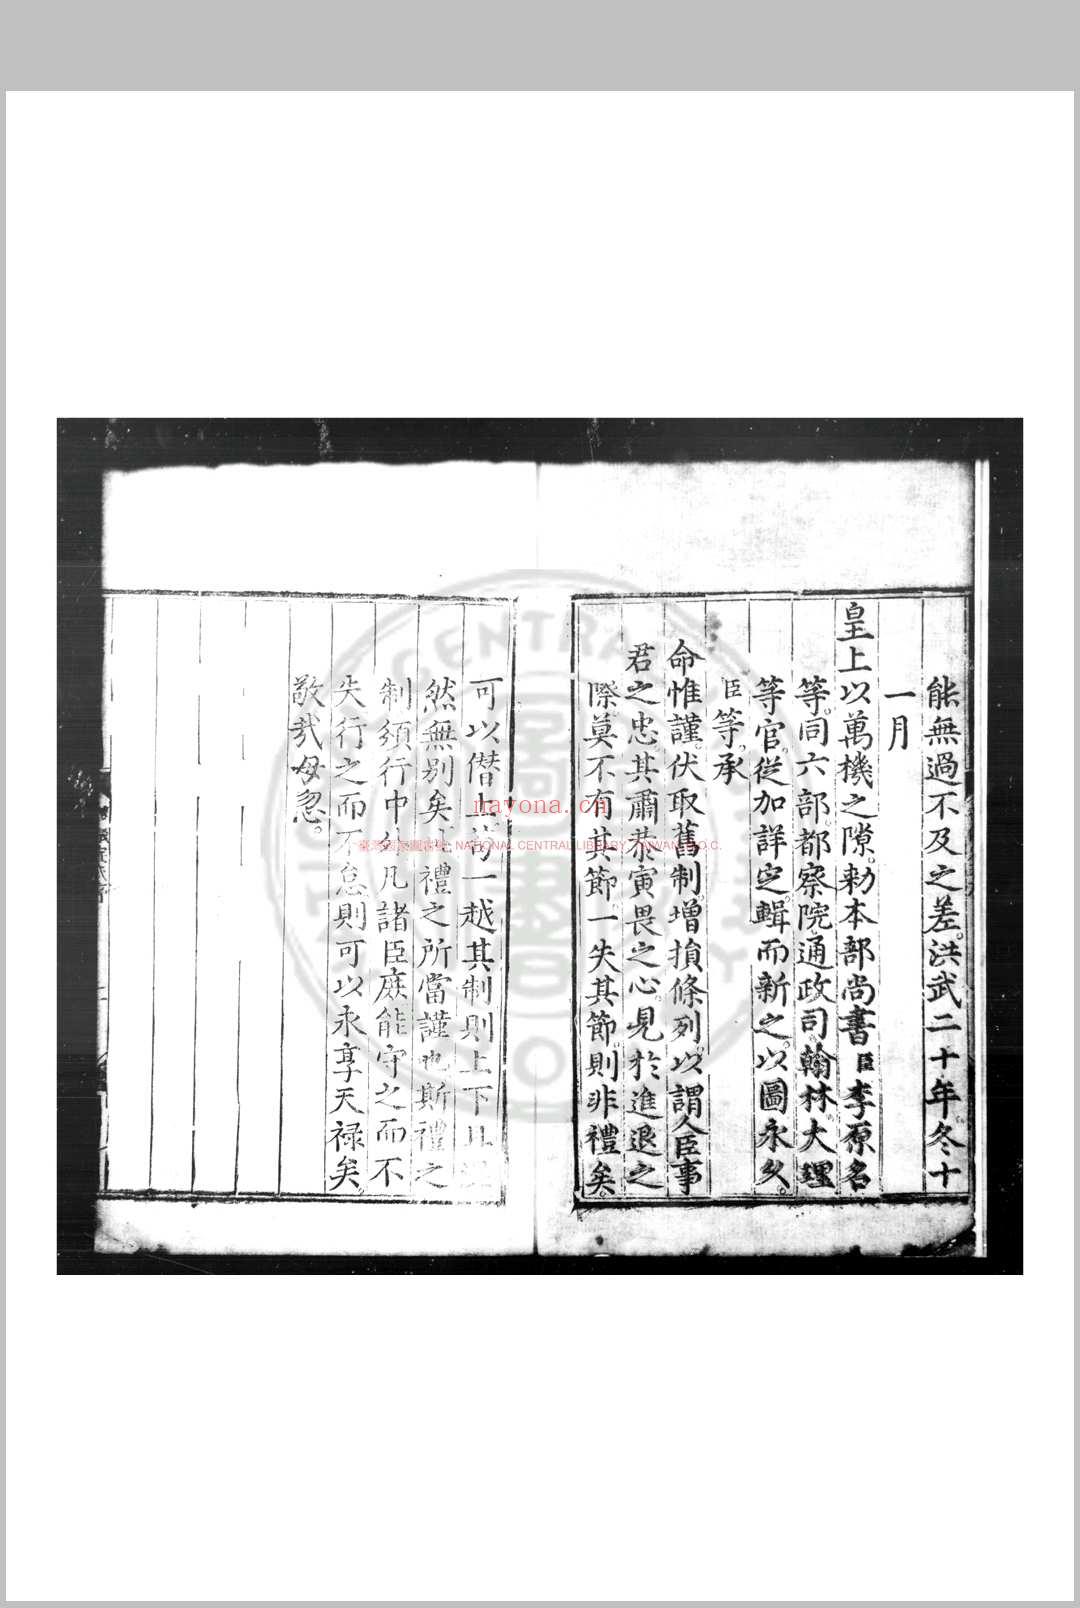 能無過不及之差。洪武二十年。冬十
一月
皇上以萬機之隙。勑本部尚書臣李原名
等。同六部。都察院。通政司。翰林。大理
等官。從加詳定。輯而新之。以圖永久。
臣等。承
命惟謹。伏取舊制。增損條列。以謂人臣事
君之忠。其肅恭寅畏之心。見於進退之
際。莫不有其節。一失其節。則非禮矣。
可以僭上。苟一越其制則上下
然無别矣 禮之所當謹也斯禮之
制須行中外凡諸臣庶能守之而不
失行之而不怠則可以永享天禄矣。
敬㢤毋忽。
nayona.cn
NATIONAL CENTRAL LIBRARY, TAIWAN R.O.C.